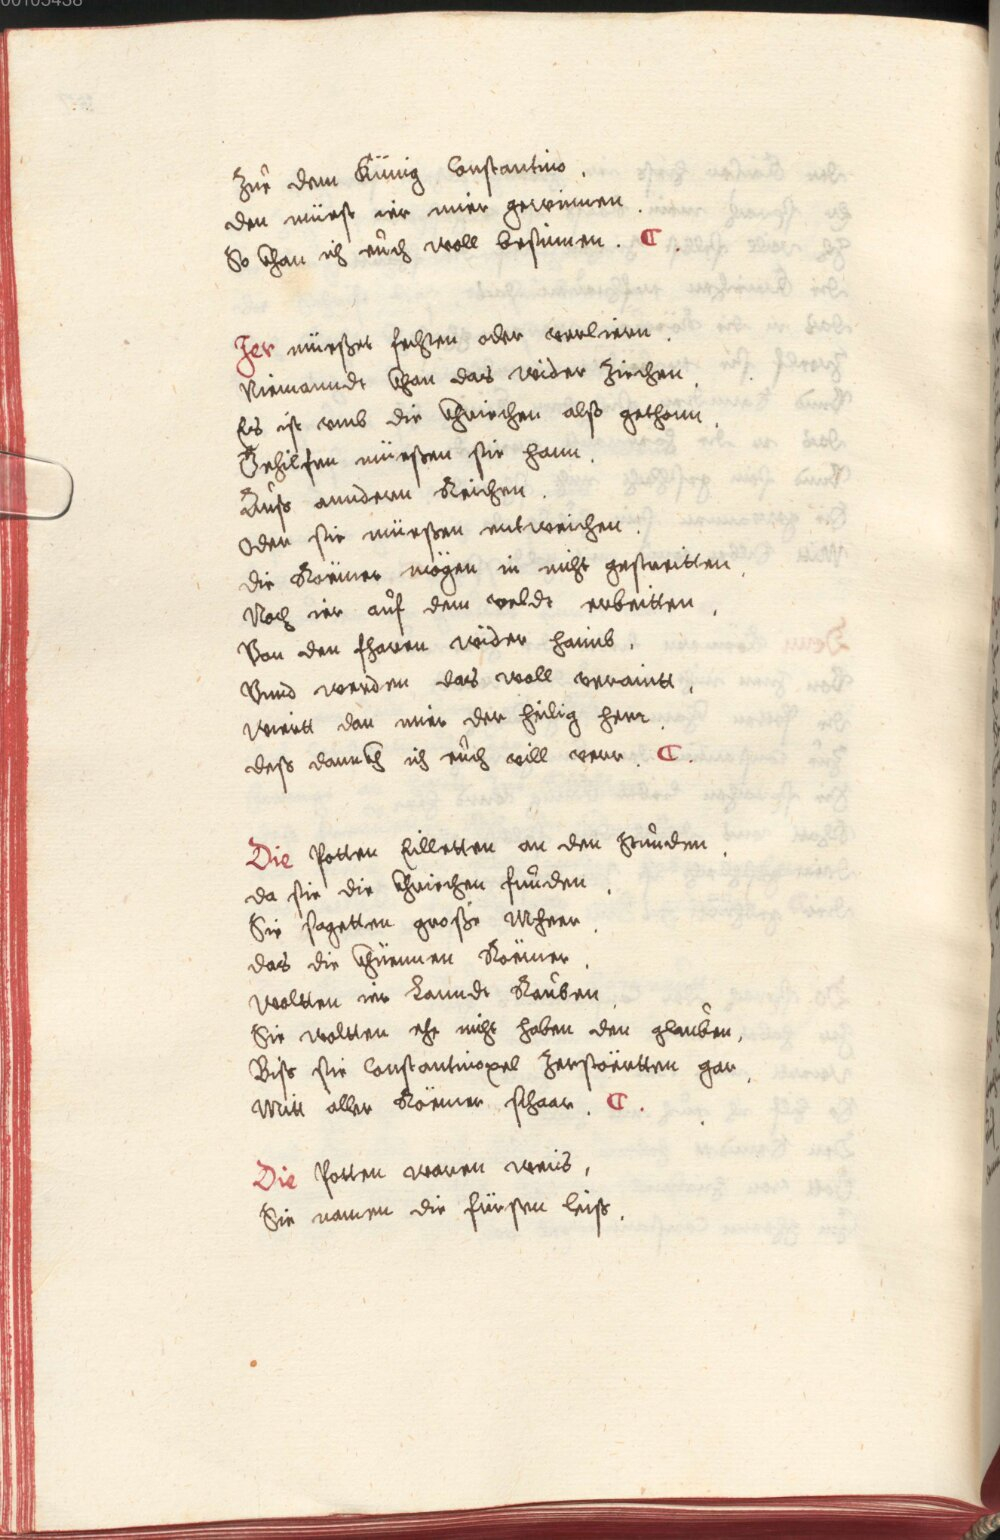 Zue dem Künig Constantino .
den müest ier mier gewinnen .
So khan ich euch woll bestimen . C .
Jer müeßet fechten oder verliern .
Niemanndt khan das wider ziechen .
Es ist vmb die khriechen alß gethonn .
Gehilfen müeßen sie honn .
Auß anndern Reichen .
Oder sie müeßen entweichen .
die Roemer mögen in nicht gestreitten .
Noch ier auf dem veldt erbeitten .
Von den sharen wider haimb .
Vnnd werden das woll veraintt .
Wiertt dan mier der heilig herr .
deß dannkh ich euch vill verr . C .
Die Potten Eilletten an den stunden .
da sie die khriechen funden .
Sie sagetten große Mheer .
das die khüennen Roemer .
woltten ier Lanndt Rauben .
Sie woltten ehe nicht haben den glauben .
Biß sie Constantinopel zerstöertten gar .
Mitt aller Roemer schaar . C .
Die Potten waren weiß .
Sie namen die fürsten leiß .